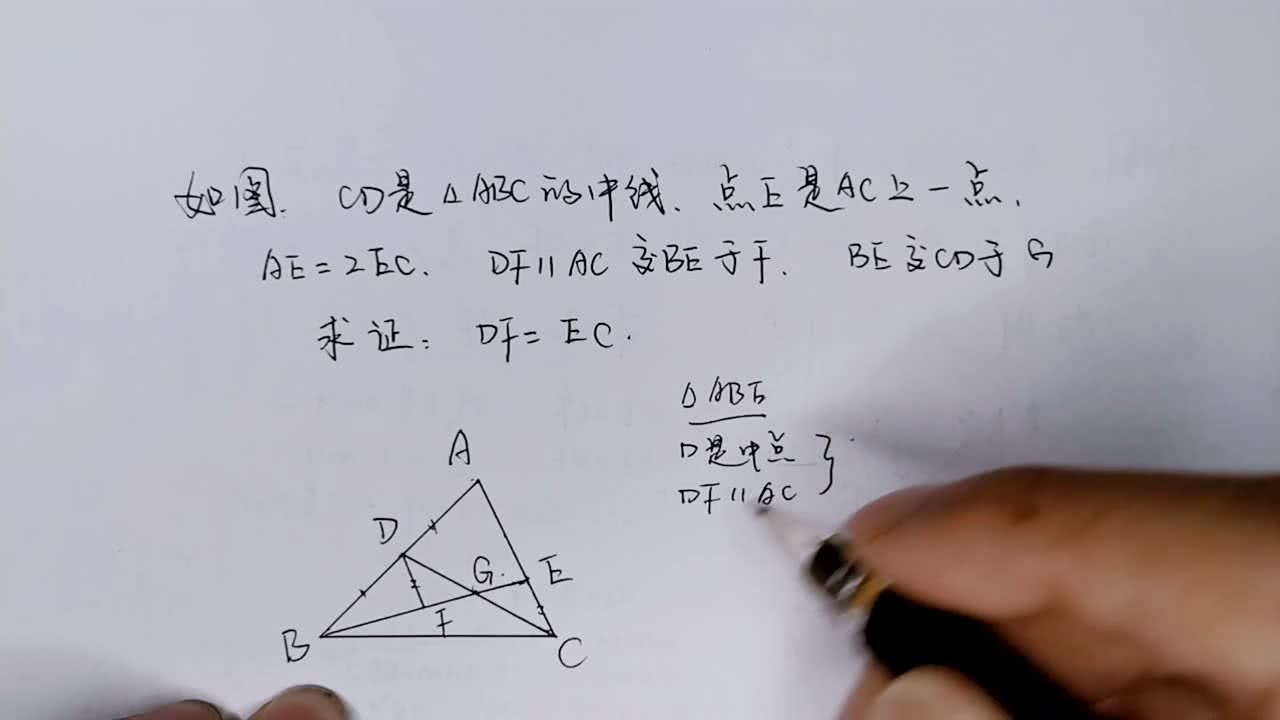 如图. CD是△ABC的中线、点E是AC上一点.
AE=2EC. DF∥AC交BE于F. BE交CD于G
求证: DF=EC.
△ABE
D是中点
DF∥AC
A
D
G
E
F
B
C